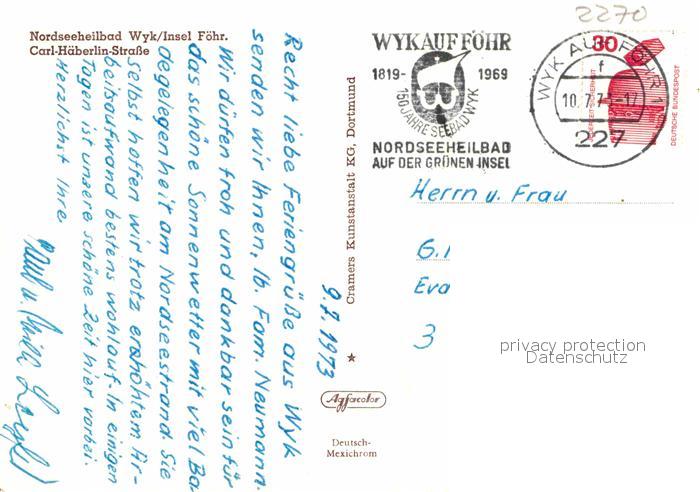 Nordseeheilbad Wyk/Insel Föhr.
Carl-Häberlin-Straße
Recht liebe Feriengrüße aus Wyk
senden wir Ihnen, lb. Fam. Neumann.
Wir dürfen froh und dankbar sein für
das schöne Sonnenwetter mit viel Ba
degelegenheit am Nordseestrand. Sie
Selbst hoffen wir trotz erhöhtem Ar-
beitsaufwand bestens wohlauf. In einigen
Tagen ist unsere schöne Zeit hier vorbei.
Herzlichst Ihre
9.7.1973
Cramers Kunstanstalt KG, Dortmund
Agfacolor
Deutsch-
Mexichrom
2270
WYK AUF FÖHR
1819- 1969
150 JAHRE SEEBAD WYK
NORDSEEHEILBAD
AUF DER GRÜNEN INSEL
WYK AUF FÖHR 1
f
10.7.73-17
227
30
JEDERZEIT SICHERHEIT
DEUTSCHE BUNDESPOST
Herrn u. Frau
G.
Eva
3
privacy protection
Datenschutz